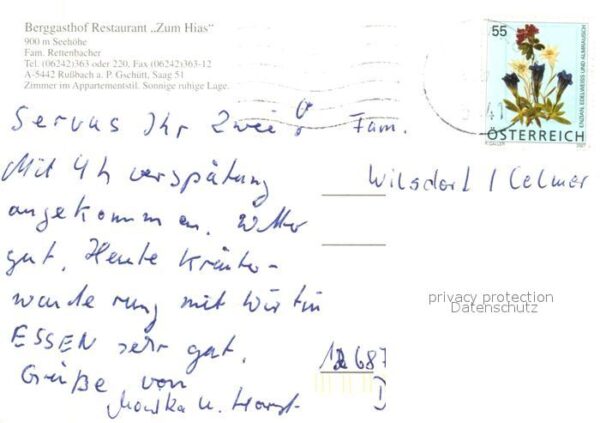 Berggasthof Restaurant „Zum Hias“
900 m Seehöhe
Fam. Rettenbacher
Tel. (06242)363 oder 220, Fax (06242)363-12
A-5442 Rußbach a. P. Gschütt, Saag 51
Zimmer im Appartementstil. Sonnige ruhige Lage.
Servus Ihr Zwei!
Mit 4 h verspätung
angekommen. Wetter
gut. Heute Kräuter-
wanderung mit Wirtin
ESSEN sehr gut.
Grüße von
Monika u. Horst
55
ENZIAN, EDELWEISS UND ALMRAUSCH
ÖSTERREICH
P. GALLER
2007
Fam.
Wilsdorf / Celmer
privacy protection
Datenschutz
12687